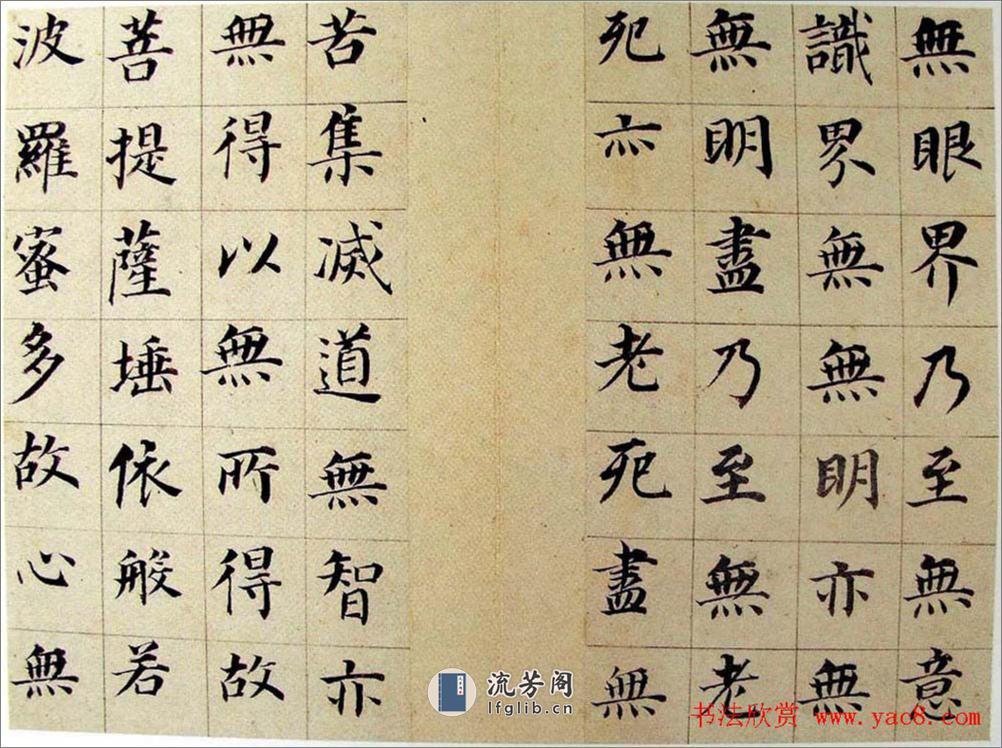 無眼界乃至無意
識界無無明亦無
無明盡乃至無老
死亦無老死盡無
苦集滅道無智亦
無得以無所得故
菩提薩埵依般若
波羅蜜多故心無
流芳阁
lfglib.cn
书法欣赏 www.yac8.com